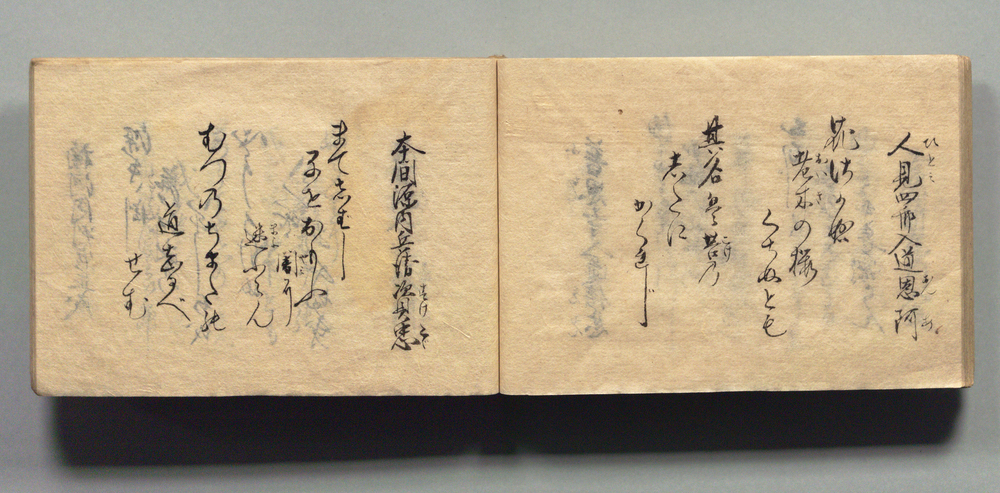 人見四郎入道恩阿
花さかぬ
老木の桜
くちぬとも
其名は苔の
したに
かくれじ
本間源内兵衛資忠
まてしばし
子をおもふ
闇に
迷ふらん
むつのちまたの
道しるべ
せむ